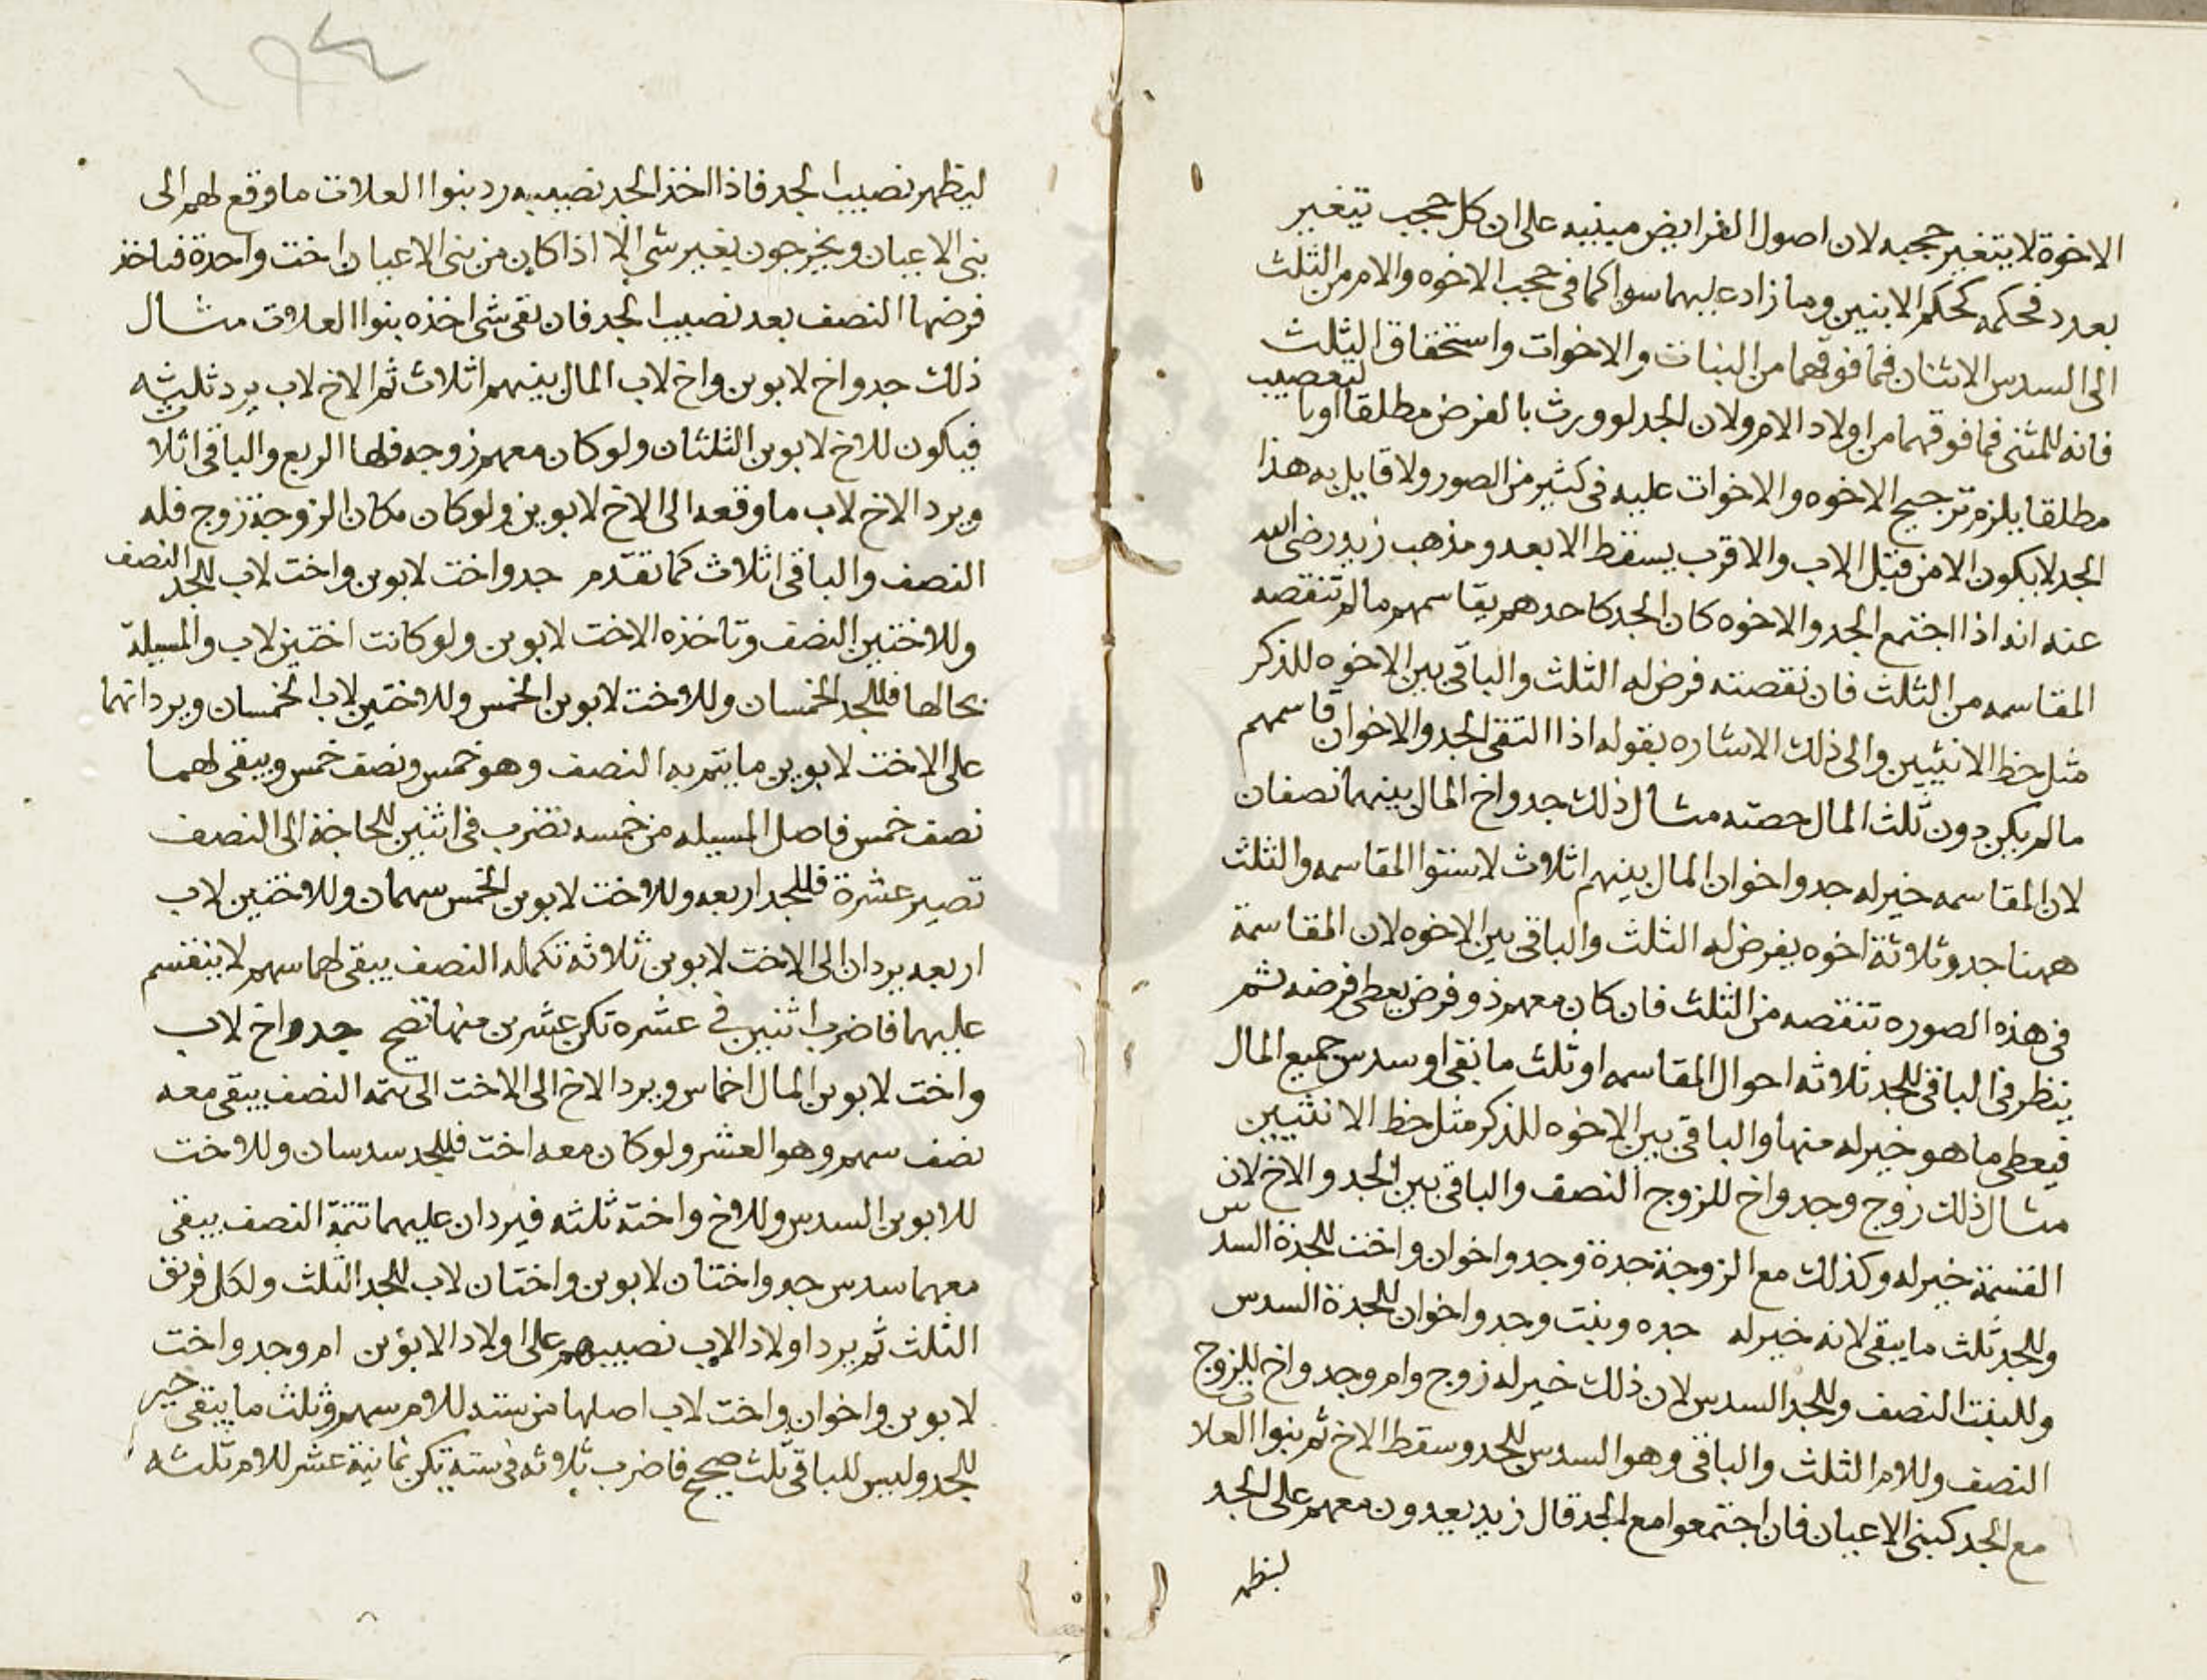 الاخوة لا يتغير حجبه لان اصول الفرايض مبنيه على ان كل حجب يتغير
بعدد فحكمه كحكم الابنين وما زاد عليهما سوا كما فى حجب الاخوه والام من الثلث
الى السدس الاثنان فما فوقهما من البنات والاخوات واستحقاق الثلث
فانه للمثنى فما فوقهما من اولاد الام ولان الجد لو ورث بالفرض مطلقا او بالتعصيب
مطلقا يلزم ترجيح الاخوه والاخوات عليه فى كثير من الصور ولا قايل به هذا
الجد لا يكون الا من قبل الاب والاقرب يسقط الابعد ومذهب زيد رضى الله
عنه انه اذا اجتمع الجد والاخوه كان الجد كاحدهم يقاسمهم ما لم تنقصه
المقاسمه من الثلث فان نقصته فرض له الثلث والباقى بين الاخوه للذكر
مثل حظ الانثيين والى ذلك الاشاره بقوله اذا التقى الجد والاخوان قاسمهم
ما لم يكن دون ثلث المال حصته مثال ذلك جد واخ المال بينهما نصفان
لان المقاسمه خير له جد واخوان المال بينهم اثلاث لاستوا المقاسمه والثلث
ههنا جد وثلاثة اخوه يفرض له الثلث والباقى بين الاخوه لان المقاسمة
فى هذه الصوره تنقصه من الثلث فان كان معهم ذو فرض يعطى فرضه ثم
ينظر فى الباقى للجد ثلاثه احوال المقاسمه او ثلث ما بقى او سدس جميع المال
فيعطى ما هو خير له منها والباقى بين الاخوه للذكر مثل حظ الانثيين
مثال ذلك زوج وجد واخ للزوج النصف والباقى بين الجد والاخ لان
القسمة خير له وكذلك مع الزوجة جدة وجد واخوان واخت للجدة السدس
وللجد ثلث ما يبقى لانه خير له جده وبنت وجد واخوان للجدة السدس
وللبنت النصف وللجد السدس لان ذلك خير له زوج وام وجد واخ للزوج
النصف وللام الثلث والباقى وهو السدس للجد وسقط الاخ ثم بنوا العلات
مع الجد كبنى الاعيان فان اجتمعوا مع الجد قال زيد يعدون معهم على الجد
ليظهر
ليظهر نصيب الجد فاذا اخذ الجد نصيبه رد بنوا العلات ما وقع لهم الى
بنى الاعيان ويخرجون بغير شى الا اذا كان من بنى الاعيان اخت واحدة فتاخذ
فرضها النصف بعد نصيب الجد فان بقى شى اخذه بنوا العلات مثال
ذلك جد واخ لابوين واخ لاب المال بينهم اثلاث ثم الاخ لاب يرد ثلثه
فيكون للاخ لابوين الثلثان ولو كان معهم زوجه فلها الربع والباقى اثلاث
ويرد الاخ لاب ما وقعه الى الاخ لابوين ولو كان مكان الزوجة زوج فله
النصف والباقى اثلاث كما تقدم جد واخت لابوين واخت لاب للجد النصف
وللاختين النصف وتاخذه الاخت لابوين ولو كانت اختين لاب والمسيلة
بحالها فللجد الخمسان وللاخت لابوين الخمس وللاختين لاب الخمسان ويردانهما
على الاخت لابوين ما يتم به النصف وهو خمس ونصف خمس ويبقى لهما
نصف خمس فاصل المسيله من خمسه تضرب فى اثنين للحاجة الى النصف
تصير عشرة فللجد اربعه وللاخت لابوين الخمس سهمان وللاختين لاب
اربعه يردان الى الاخت لابوين ثلاثه تكمله النصف يبقى لهما سهم لا ينقسم
عليهما فاضرب اثنين فى عشره تكن عشرين منها تصح جد واخ لاب
واخت لابوين المال اخماس ويرد الاخ الى الاخت الى تتمه النصف يبقى معه
نصف سهم وهو العشر ولو كان معه اخت فللجد سدسان وللاخت
للابوين السدس وللاخ واخته ثلثه فيردان عليهما تتمة النصف يبقى
معهما سدس جد واختان لابوين واختان لاب للجد الثلث ولكل فريق
الثلث ثم يرد اولاد الاب نصيبهم على اولاد الابوين ام وجد واخت
لابوين واخوان واخت لاب اصلها من سته للام سهم وثلث ما يبقى خير
للجد وليس للباقى ثلث صحيح فاضرب ثلاثه فى سته تكن ثمانية عشر للام ثلثه